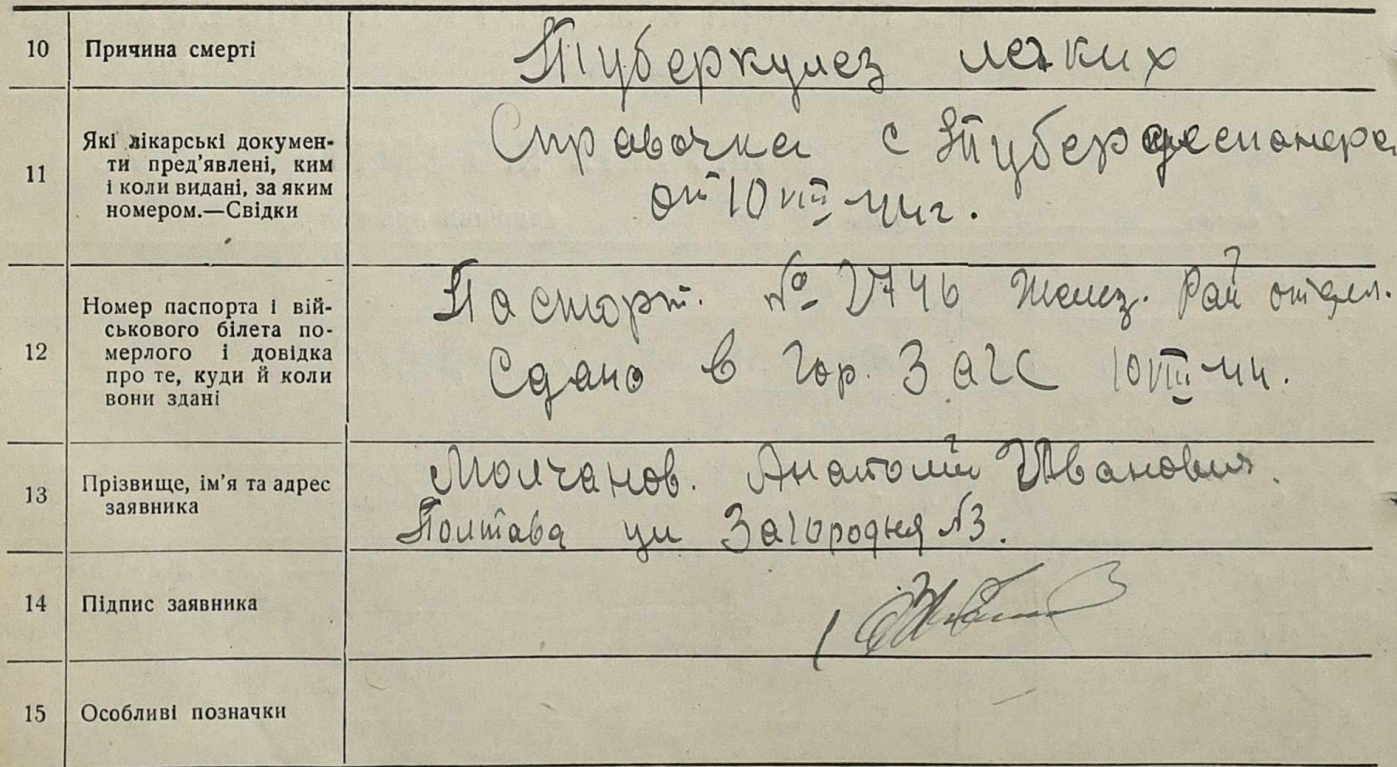 10 Причина смерті Туберкулез легких
11 Які лікарські докумен-
ти пред'явлені, ким
і коли видані, за яким
номером.—Свідки
Справочка с Тубердиспансера
от 10 VIII 44 г.
12 Номер паспорта і вій-
ськового білета по-
мерлого і довідка
про те, куди й коли
вони здані
Паспорт. № 2746 Желез. Рай отдел.
Сдано в гор. ЗАГС 10 VIII 44.
13 Прізвище, ім'я та адрес
заявника
Молчанов. Анатолий Иванович.
Полтава ул Загородня №3.
14 Підпис заявника
15 Особливі позначки